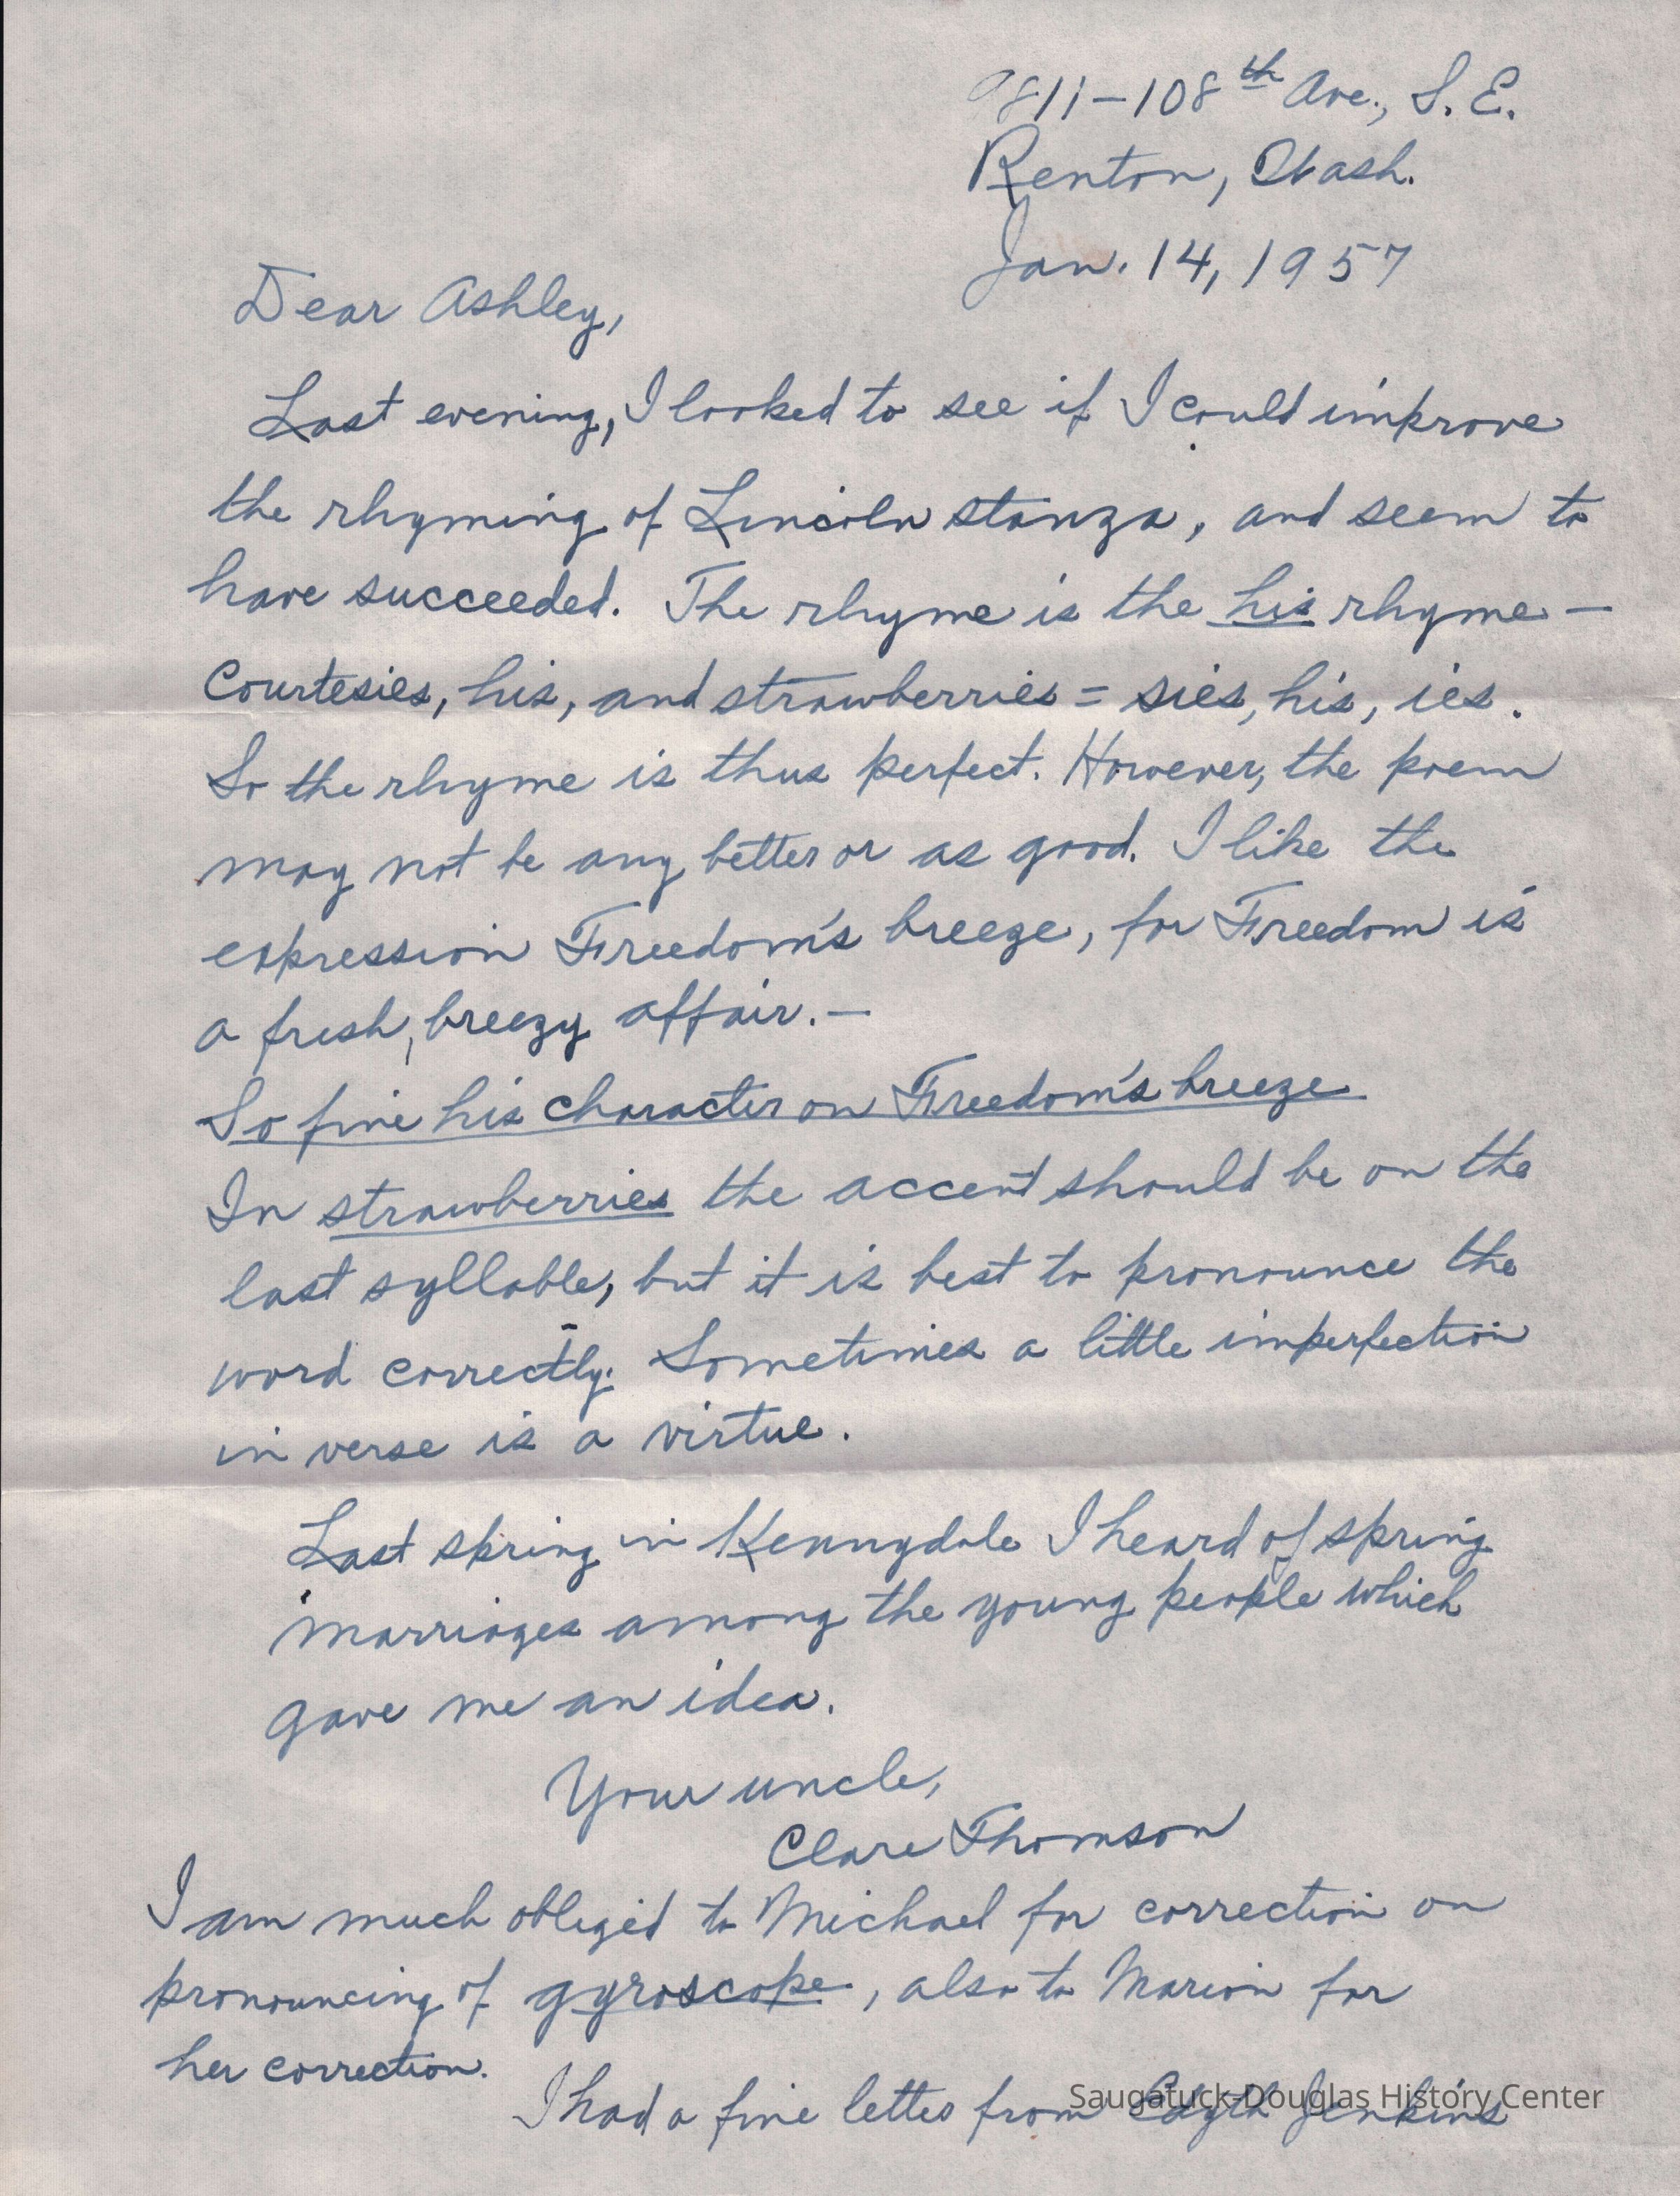 9811-108th Ave., S. E.
Renton, Wash.
Jan. 14, 1957
Dear Ashley,
Last evening, I looked to see if I could improve
the rhyming of Lincoln stanza, and seem to
have succeeded. The rhyme is the his rhyme —
Courtesies, his, and strawberries = sies, his, ies.
So the rhyme is thus perfect. However, the poem
may not be any better or as good. I like the
expression Freedom's breeze, for Freedom is
a fresh, breezy affair. —
So fine his character on Freedom's breeze
In strawberries the accent should be on the
last syllable, but it is best to pronounce the
word correctly. Sometimes a little imperfection
in verse is a virtue.
Last spring in Kennydale I heard of spring
marriages among the young people which
gave me an idea.
Your uncle,
Clare Thomson
I am much obliged to Michael for correction on
pronouncing of gyroscope, also to Marion for
her correction.
I had a fine letter from Edyth Jenkins
Saugatuck-Douglas History Center